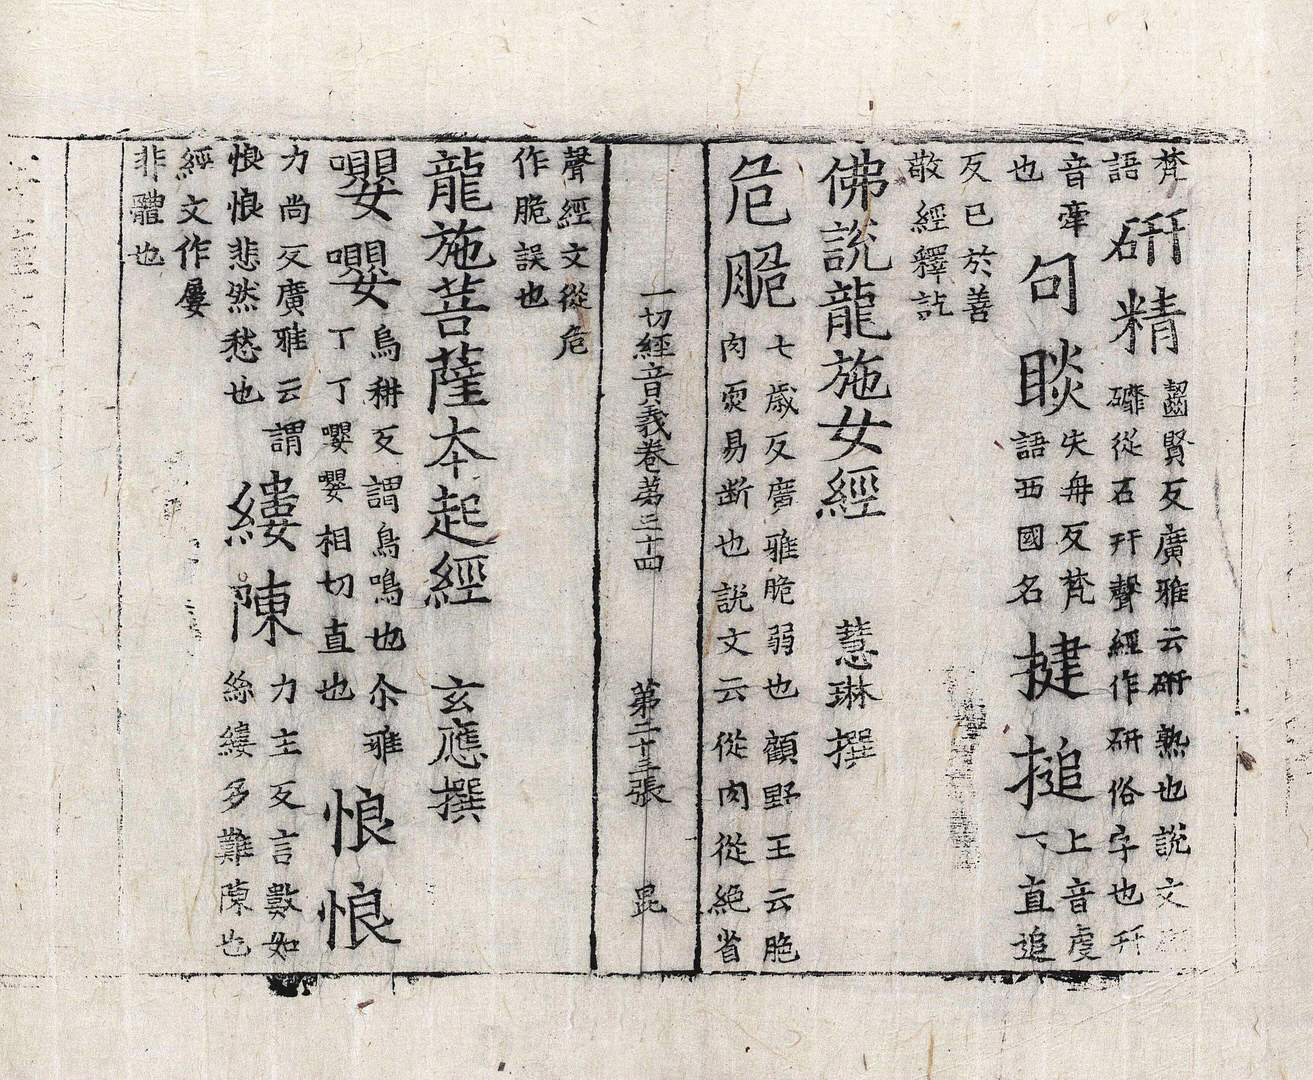 梵 研精 齧賢反廣雅云研熟也說文
語 礳從石幵聲經作研俗字也幵
音牽 句睒 失冉反梵 揵搥 上音虔
也 語西國名 下直追
反已於善
敬經釋訖
佛說龍施女經 慧琳撰
危脆 七歲反廣雅脆弱也顧野王云脆
肉耎易斷也說文云從肉從絕省
一切經音義卷第三十四 第二十三張 昆
聲經文從危
作脆誤也
龍施菩薩本起經 玄應撰
嚶嚶 烏耕反謂鳥鳴也尒雅
丁丁嚶嚶相切直也 悢悢
力尚反廣雅云謂 縷陳 力主反言數如
悢悢悲然愁也 絲縷多難陳也
經文作屢
非體也